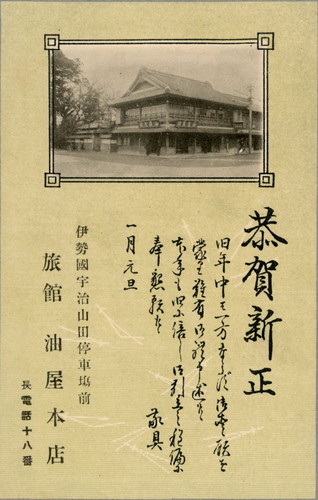 恭賀新正
旧年中ハ一方ならず御愛顧を
蒙り難有御礼申述候
本年も旧に倍し御引立之程偏に
奉懇願候
敬具
一月元旦
伊勢國宇治山田停車塲前
旅館 油屋本店
長電話十八番